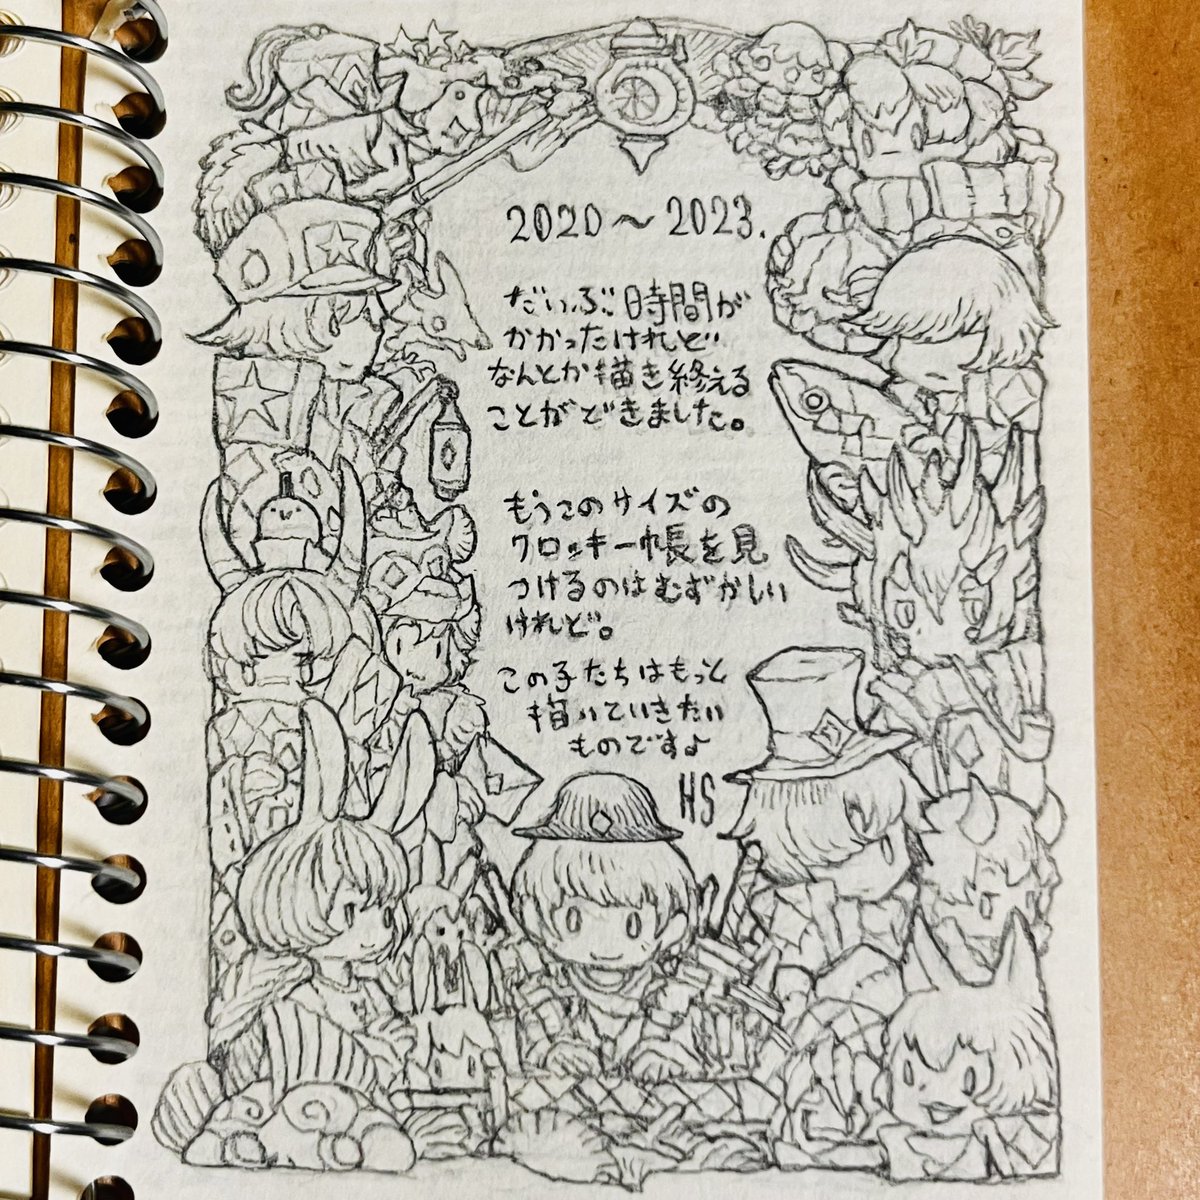 2020～2023.
だいぶ時間が
かかったけれど
なんとか描き終える
ことができました。
もうこのサイズの
クロッキー帳を見
つけるのはむずかしい
けれど。
この子たちはもっと
描いていきたい
ものです♪
HS